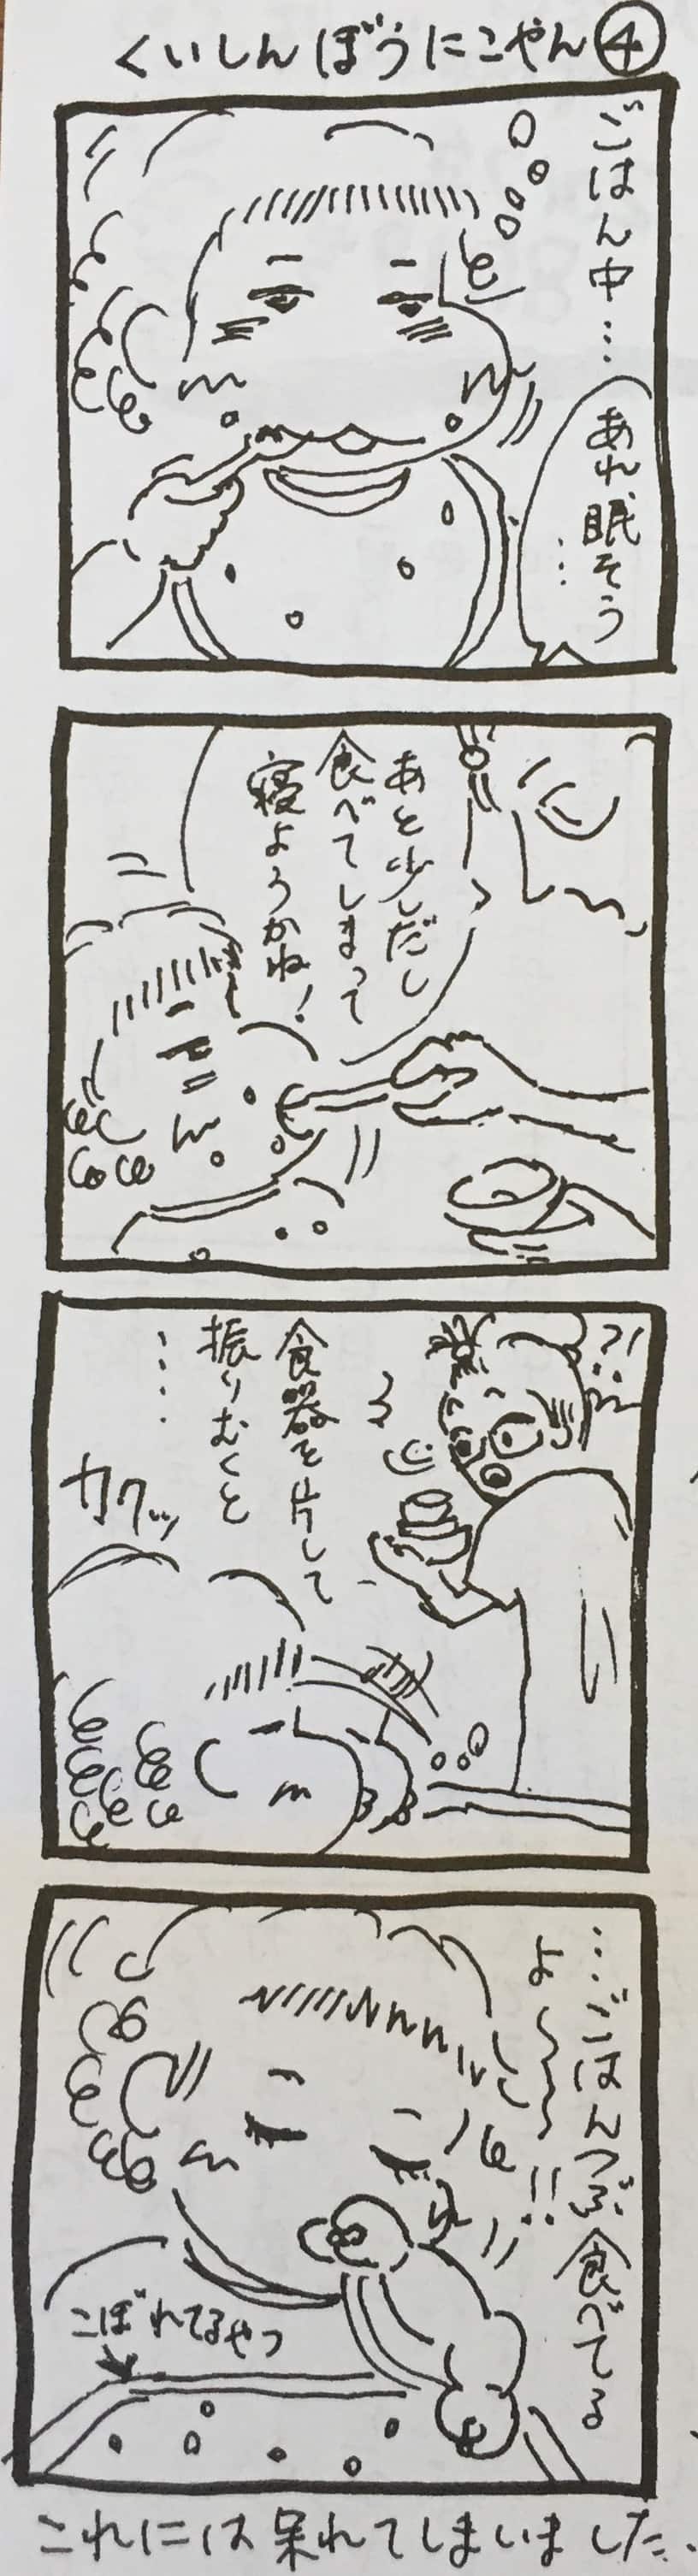 くいしんぼうにこやん④
ごはん中…
あれ眠そう
…
あと少しだし
食べてしまって
寝ようかね！
?!
食器を片して
振りむくと
‥‥
カクッ
…ごはんつぶ食べてる
よ〜〜〜!!
こぼれてるやつ
これには呆れてしまいました。